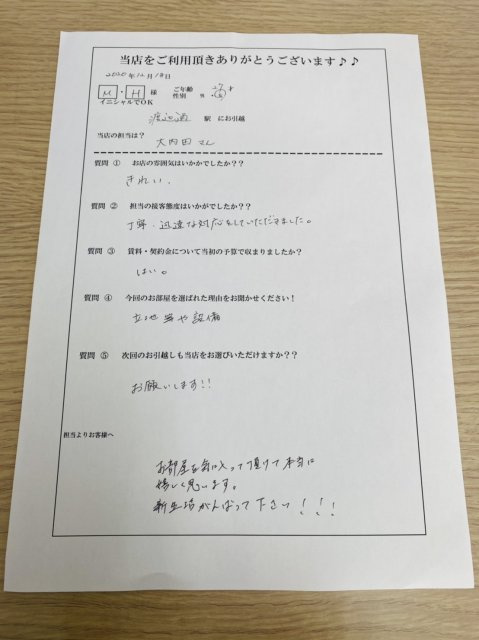 当店をご利用頂きありがとうございます♪♪
2020年12月18日
M・H 様 ご年齢 27才
イニシャルでOK 性別 男・女
渡辺通 駅 にお引越
当店の担当は?
大内田さん
質問 ① お店の雰囲気はいかかでしたか??
きれい。
質問 ② 担当の接客態度はいかがでしたか??
丁寧、迅速な対応をしていただきました。
質問 ③ 賃料・契約金について当初の予算で収まりましたか?
はい。
質問 ④ 今回のお部屋を選ばれた理由をお聞かせください!
立地当や設備
質問 ⑤ 次回のお引越しも当店をお選びいただけますか??
お願いします!!
担当よりお客様へ
お部屋を気に入って頂けて本当に
嬉しく思います。
新生活がんばって下さい!!!